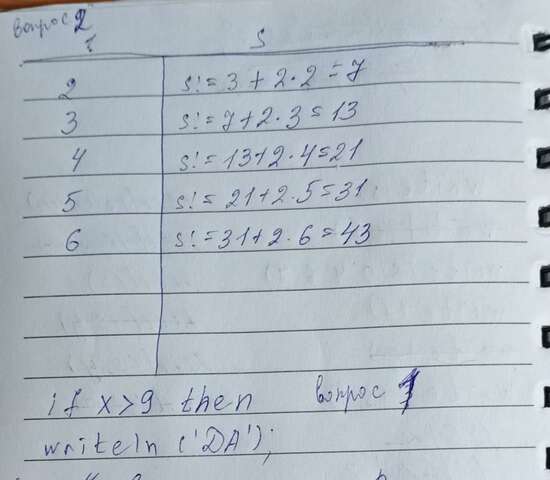 вопрос 2
i s
2 s:=3+2·2=7
3 s:=7+2·3=13
4 s:=13+2·4=21
5 s:=21+2·5=31
6 s:=31+2·6=43
if x>9 then вопрос 1
writeln ('DA');